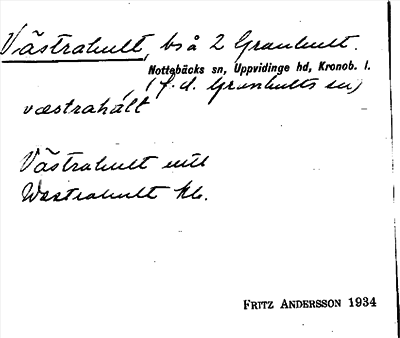 Västrahult, bs å 2 Granhult.
Nottebäcks sn, Uppvidinge hd, Kronob. l.
(f.d. Granhults sn)
væstrahált
Västrahult
Wæstrahult kb.
FRITZ ANDERSSON 1934